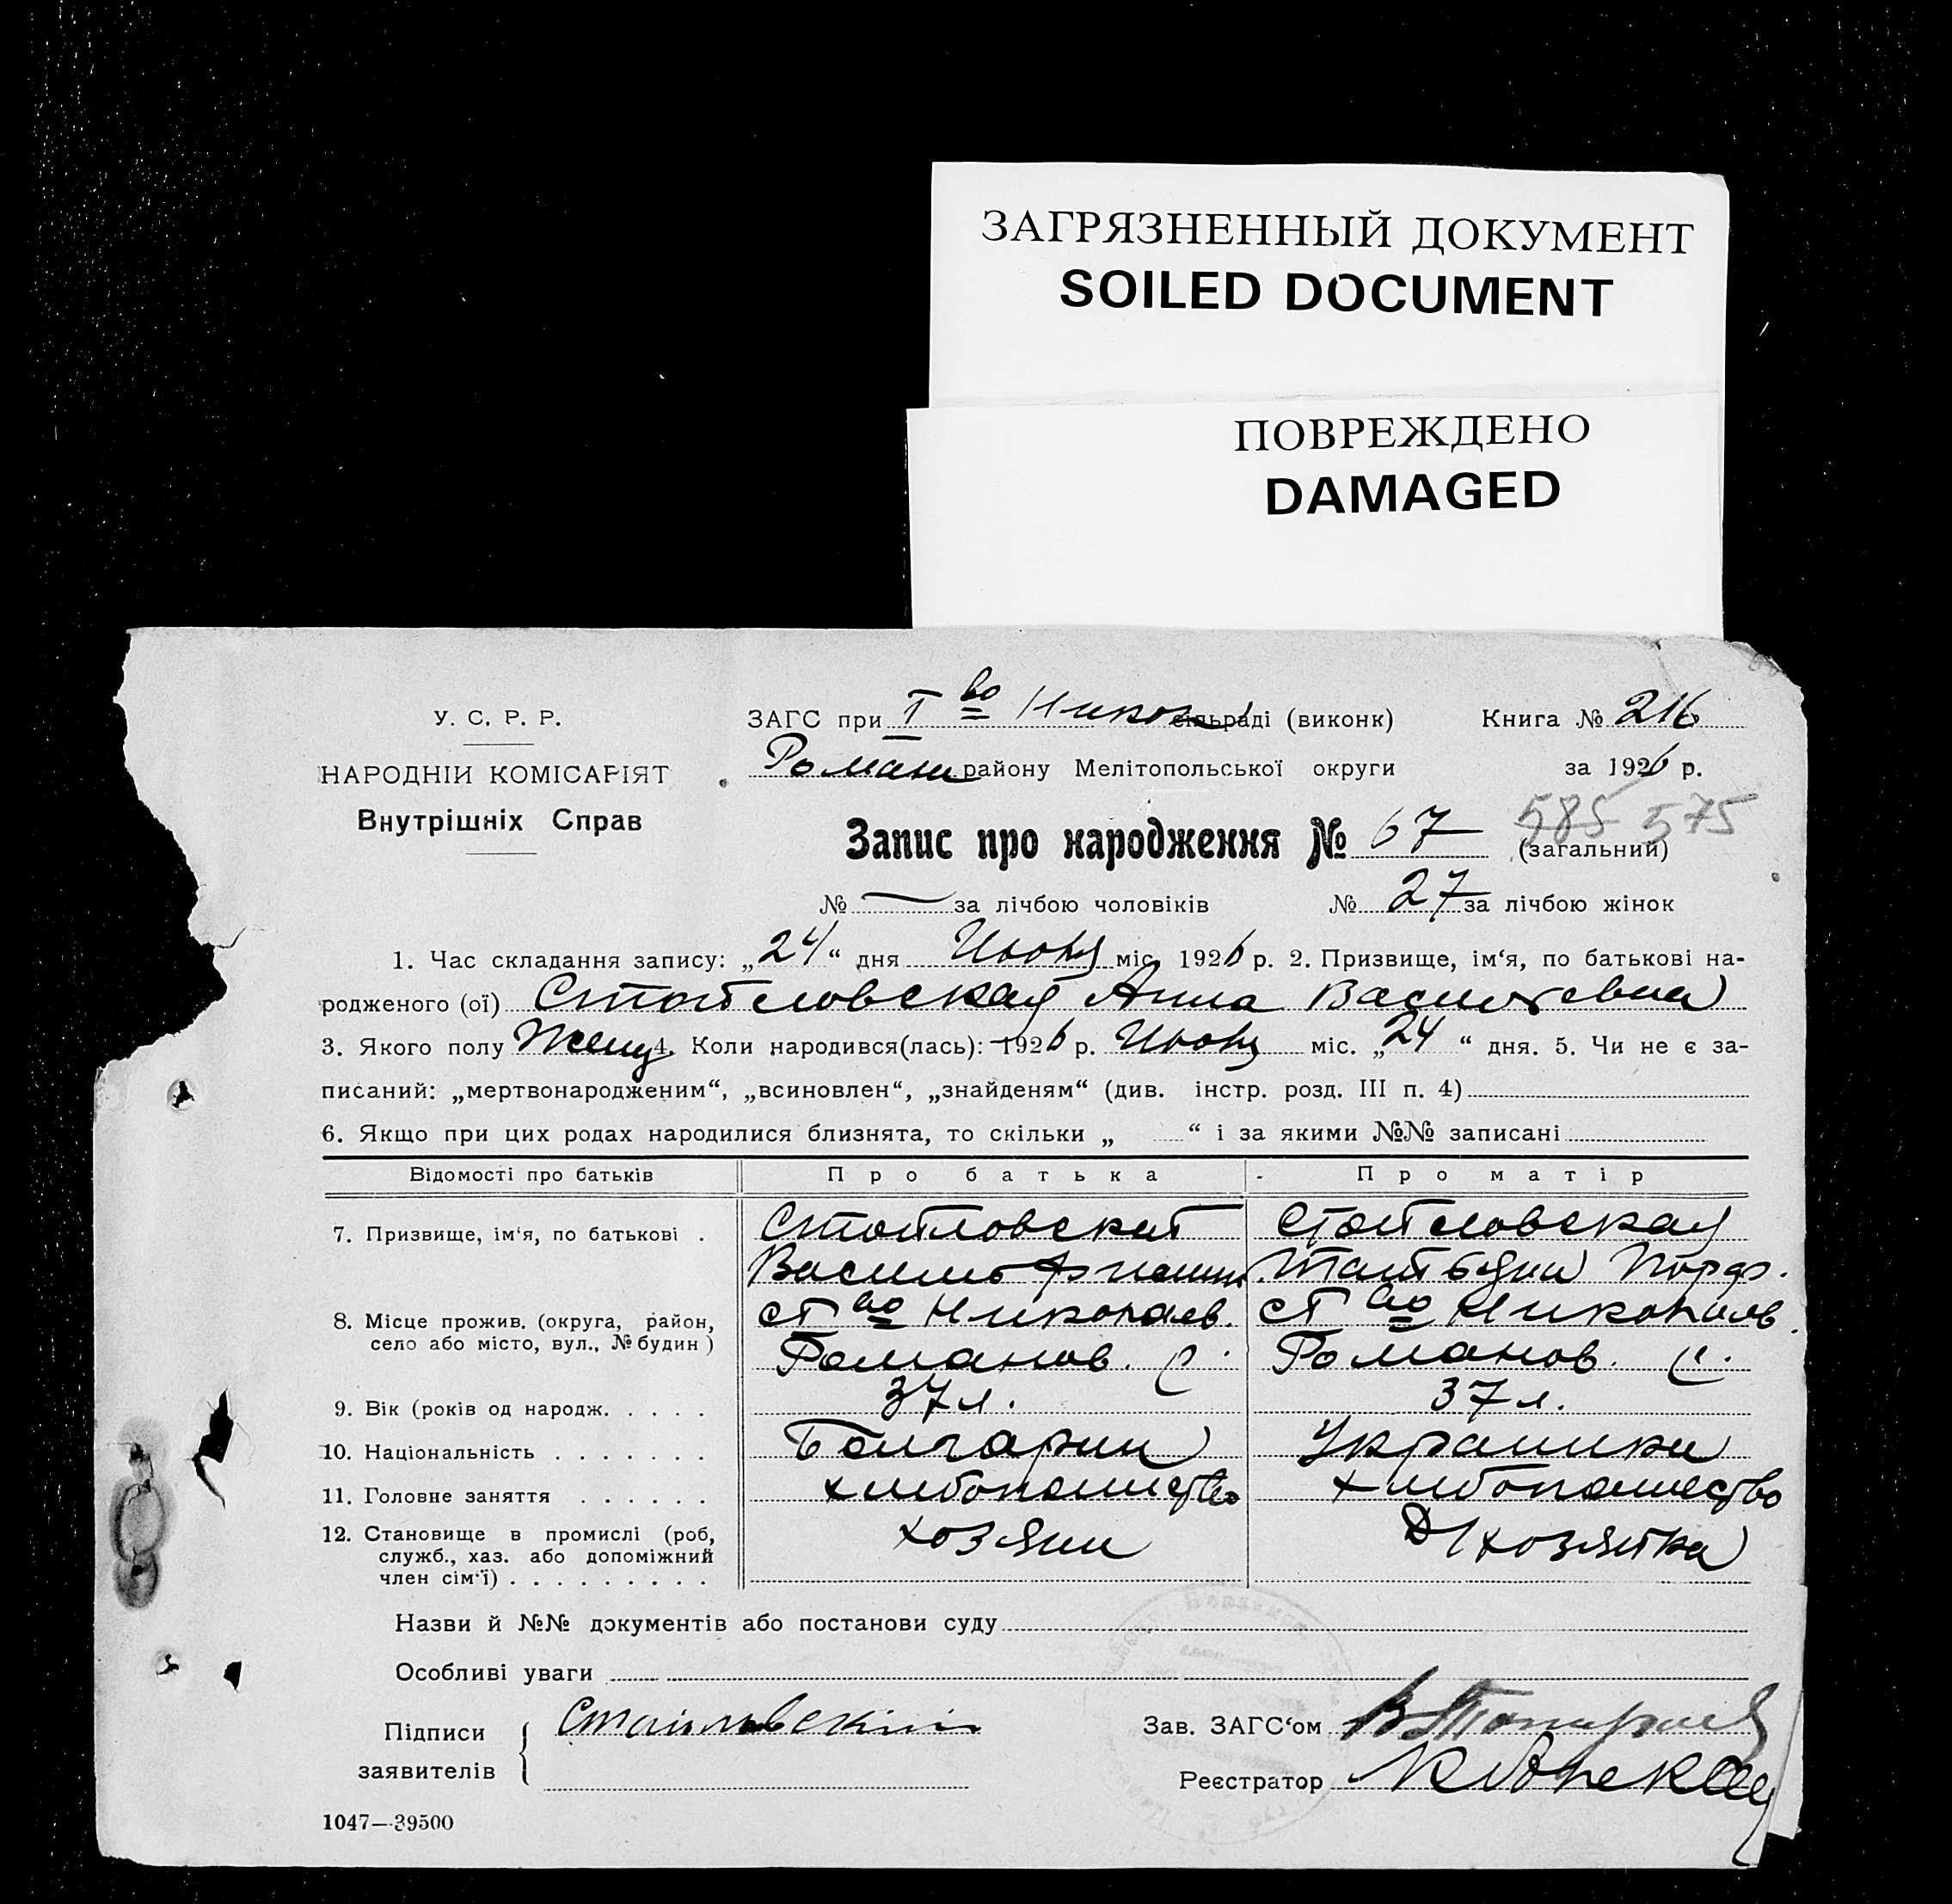 ЗАГРЯЗНЕННЫЙ ДОКУМЕНТ
SOILED DOCUMENT
ПОВРЕЖДЕНО
DAMAGED
У. С. Р. Р.
НАРОДНІЙ КОМІСАРІЯТ
Внутрішніх Справ
ЗАГС при І во Никол сільраді (виконк) Книга № 216
Роман району Мелітопольської округи за 1926 р.
Запис про народження № 67 585 575
(загальний)
№ — за лічбою чоловіків № 27 за лічбою жінок
1. Час складання запису: „24“ дня Июня міс 1926 р. 2. Призвище, ім‘я, по батькові на-
родженого (ої) Стойловская Анна Васильевна
3. Якого полу Жен 4. Коли народився(лась): 1926 р. Июня міс. „24“ дня. 5. Чи не є за-
писаний: „мертвонародженим“, „всиновлен“, „знайденям“ (див. інстр. розд. III п. 4)
6. Якщо при цих родах народилися близнята, то скільки „ “ і за якими №№ записані
Відомості про батьків Про батька Про матір
7. Призвище, ім‘я, по батькові . Стойловский Стойловская
Василь Татьяна Порф.
8. Місце прожив. (округа, район, село або місто, вул., № будин) ст во Николаев. ст во Николаев.
Романов. р. Романов. р.
9. Вік (років од народж. . . . . 37 л. 37 л.
10. Національність . . . . . . . Болгарин Украинка
11. Головне заняття . . . . . . хлибопашество хлибопашество
12. Становище в промислі (роб, служб., хаз. або допоміжний член сім‘ї) . . . . . . . . . хозяин Д/хозяйка
Назви й №№ документів або постанови суду
Особливі уваги
Підписи заявителів Стойловский
Зав. ЗАГС‘ом
Реєстратор
1047—39500